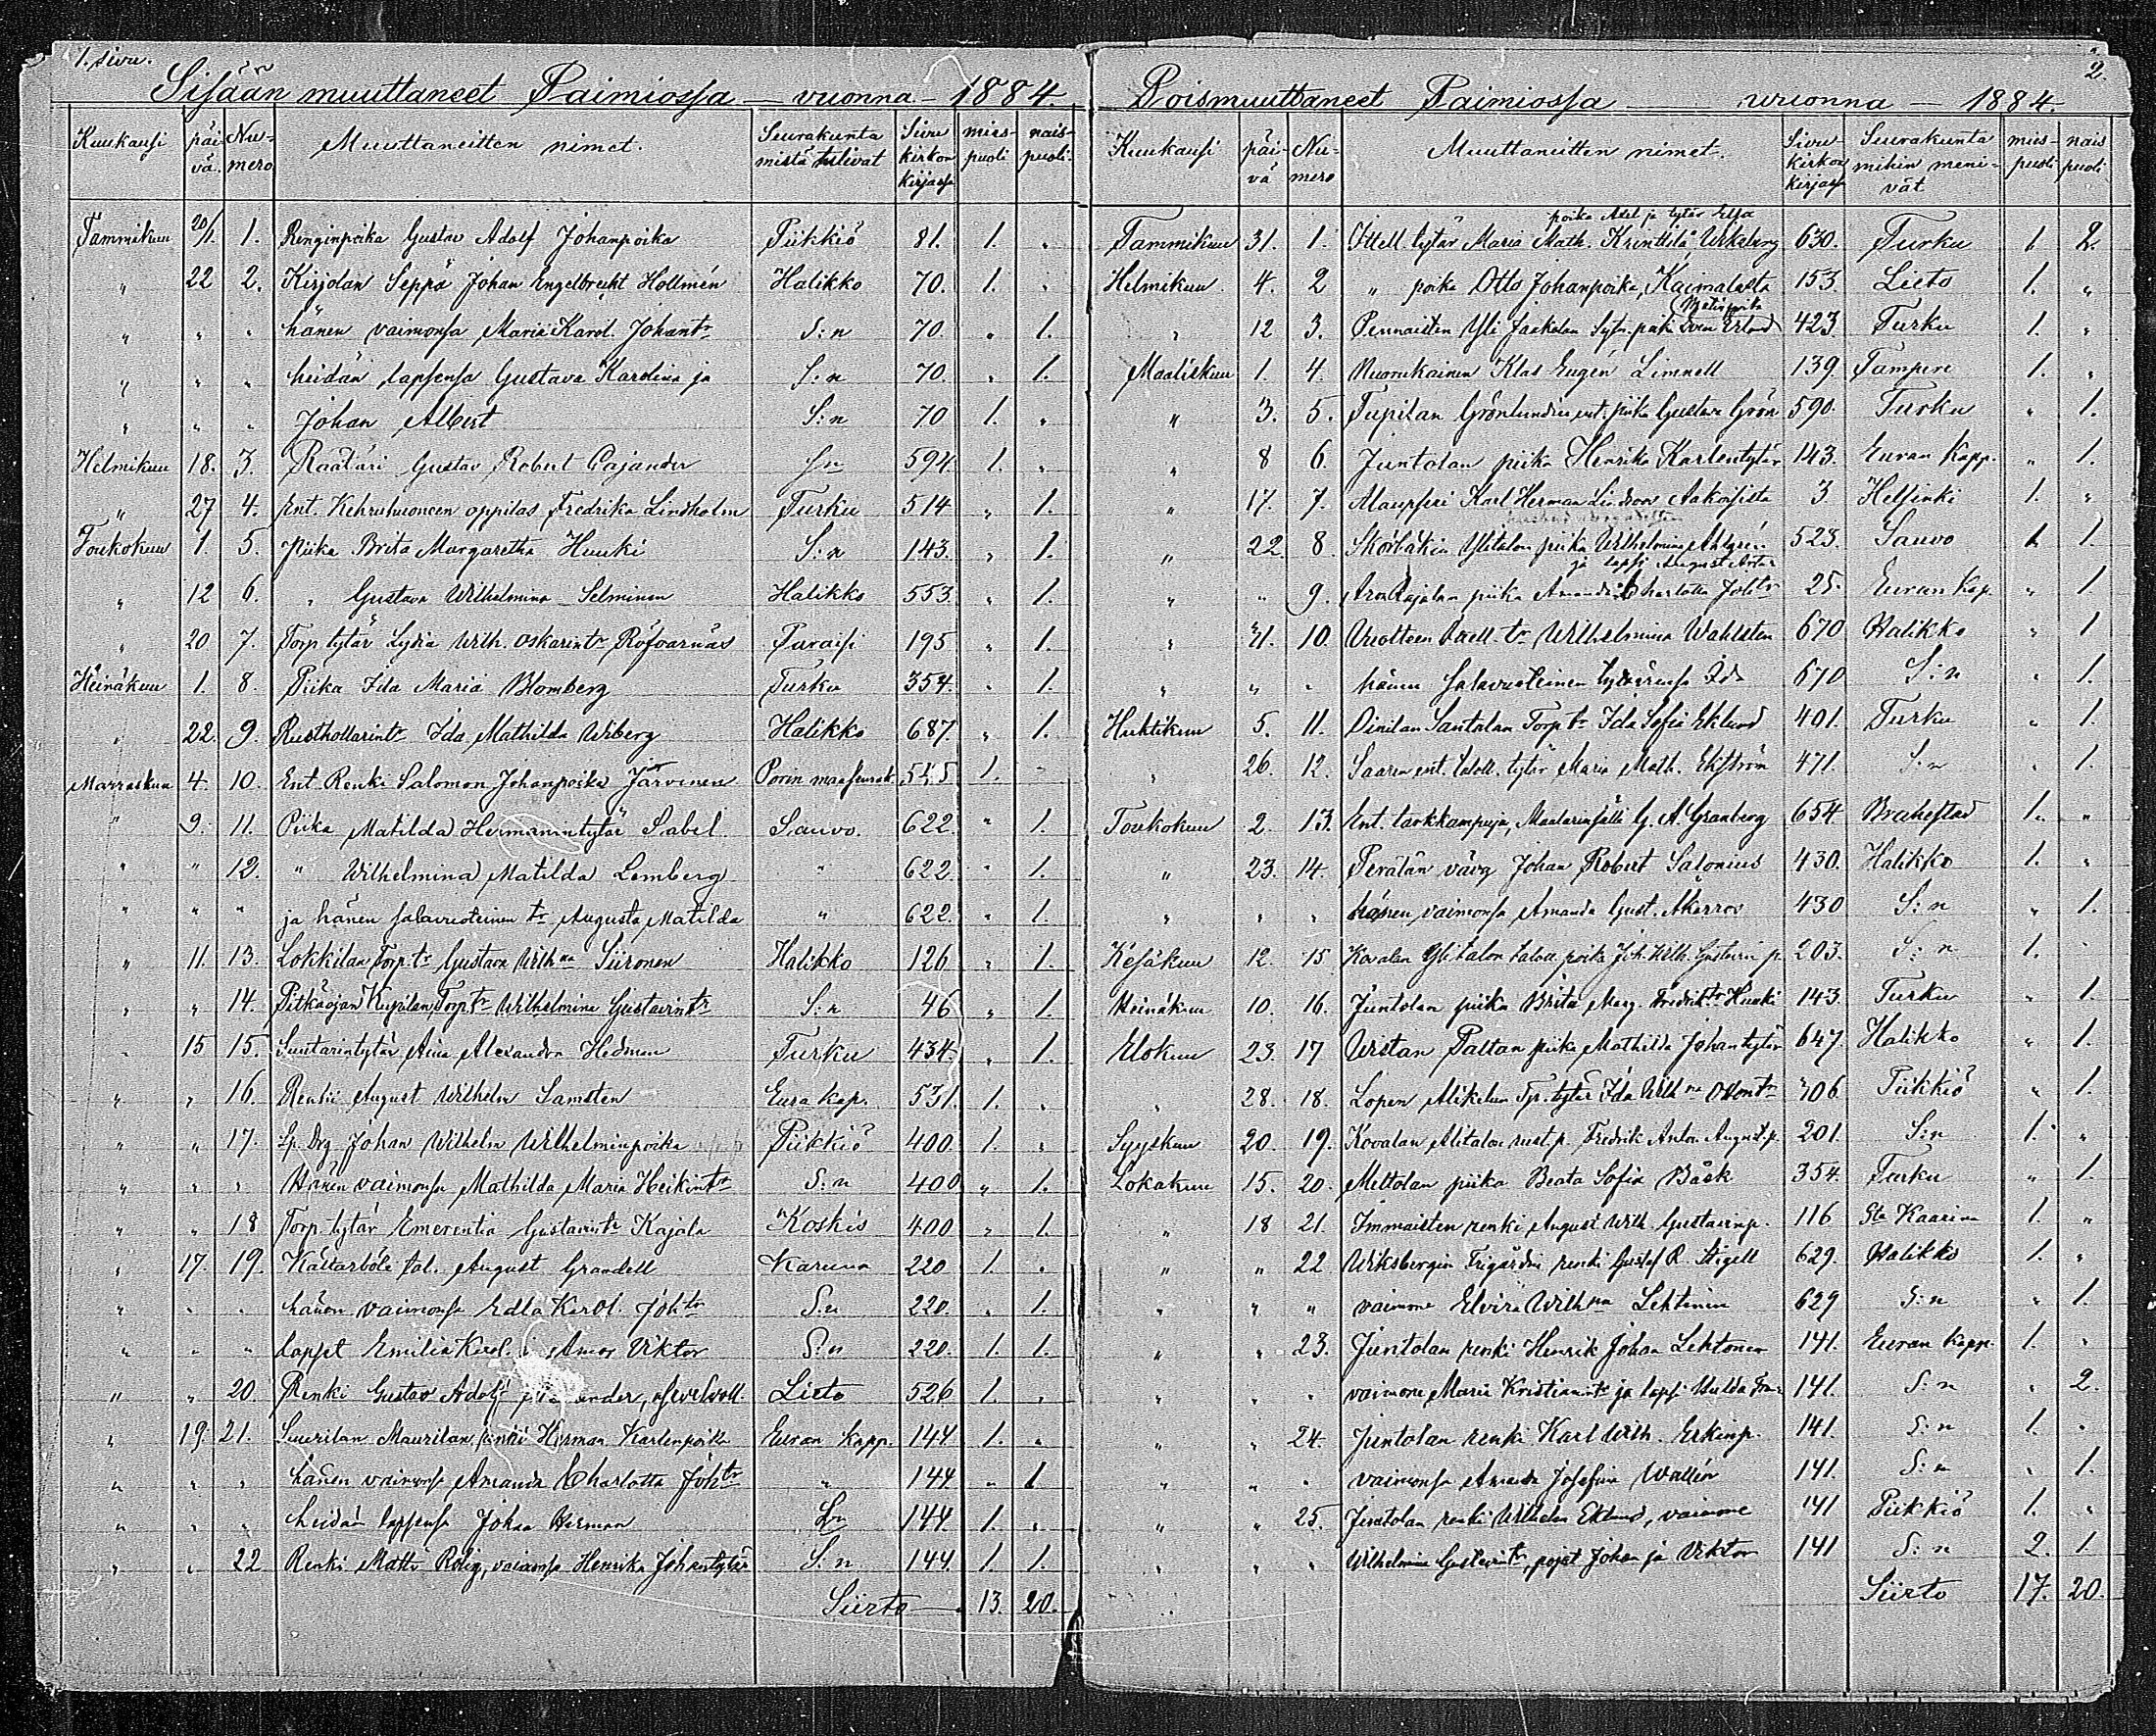 1. sivu.
Sisään muuttaneet Paimiossa — vuonna — 1884.
Kuukausi päivä. Numero Muuttaneitten nimet. Seurakunta mistä tulivat Sivu kirkon kirjassa miespuoli naispuoli.
Tammikuu 20/1. 1. Renginpoika Gustav Adolf Johanpoika Piikkiö 81. 1. „
„ 22 2. Kirjolan Seppä Johan Engelbrecht Hollmén Halikko 70. 1. „
„ „ „ hänen vaimonsa Maria Karol. Johantr S:n 70. „ 1.
„ „ „ heidän lapsensa Gustava Karolina ja S:n 70. „ 1.
„ „ „ Johan Albert S:n 70 1. „
Helmikuu 18. 3. Räätäri Gustav Robert Cajander S:n 594. 1. „
„ 27 4. Ent. Kehruhuoneen oppilas Fredrika Lindholm Turku 514 „ 1.
Toukokuu 1. 5. Piika Brita Margaretha Huuki S:n 143. „ 1.
„ 12 6. „ Gustava Wilhelmina Selminen Halikko 553. „ 1.
„ 20 7. Torp. tytär Lydia Wilh. Oskarintr Paraisi 195 „ 1.
Heinäkuu 1. 8. Piika Ida Maria Blomberg Turku 354. „ 1.
„ 22. 9. Rusthollarintr Ida Mathilda Wiberg Halikko 687. „ 1.
Marraskuu 4. 10. Ent. Renki Salomon Johanpoika Järvinen Porin maaseurak. 545 1. „
„ 9. 11. Piika Matilda Hermanintytär Sabel Sauvo. 622. „ 1.
„ „ 12. „ Wilhelmina Matilda Lemberg „ 622. „ 1.
„ „ „ ja hänen salavuoteinen tr Augusta Matilda „ 622. „ 1.
„ 11. 13. Lokkilan Torp. tr Gustava Wilhna Siironen Halikko 126 „ 1.
„ „ 14. Pitkäojan Torp. tr Wilhelmina Gustavintr S:n 46 „ 1.
„ 15 15. Suutarintytär Aina Alexandra Hedman Turku 434. „ 1.
„ „ 16. Renki August Wilhelm Samsten Eura kap. 531. 1. „
„ „ 17. Johan Wilhelm Wilhelminpoika Piikkiö 400. 1. „
„ „ „ Hänen vaimonsa Mathilda Maria Heikintr S:n 400 „ 1.
„ „ 18 Torp. tytär Emerentia Gustavintr Kajala Koskis 400 „ 1.
„ 17. 19. tal. August Grandell Karuna 220 1. „
„ „ „ hänen vaimonsa Edla Karol. Johtr S:n 220. „ 1.
„ „ „ lapset Emilia Karol. Amos Viktor S:n 220. 1. 1.
„ „ 20. Renki Gustav Adolf Lieto 526 1. „
„ 19. 21. Suurilan Maurilan renki Herman Karlenpoika Euran Kapp. 144. 1. „
„ „ „ hänen vaimonsa Amanda Charlotta Johtr „ 144. „ 1
„ „ „ heidän lapsensa Johan Herman S:n 144. 1. „
„ „ 22 Renki Matti Rölig, vaimonsa Henrika Johantytär S:n 144. 1. 1.
Siirto — 13. 20.
2.
Poismuuttaneet Paimiossa — vuonna — 1884.
Kuukausi päivä Numero Muuttaneitten nimet. Sivu kirkon kirjassa Seurakunta mihin menivät miespuoli naispuoli
poika Axel ja tytär Elsa
Tammikuu 31. 1. Ittell. tytär Maria Math. Kinttilä 630. Turku 1 2.
Helmikuu 4. 2 „ poika Otto Johanpoika, Kaimalasta 153 Lieto 1. „
„ 12 3. Pennaisten Yli Jaakolan 423 Turku 1. „
Maaliskuu 1. 4. Nuorukainen Klas Eugén Limnell 139. Tampere 1. „
„ 3. 5. ent. piika Gustava Grön 590. Turku „ 1.
„ 8 6. Juntolan piika Henrika Karlentytär 143. Euran Kapp. „ 1.
„ 17. 7. Karl Herman 3 Helsinki 1. „
„ 22. 8. Ylitalon piika Wilhelmina Ahlgrén 523. Sauvo 1 1.
ja lapsi August
„ „ 9. piika Amanda Charlotta Johtr 25. Euran Kap. „ 1.
„ 31. 10. tr Wilhelmina Wahlsten 670 Halikko „ 1
„ „ „ hänen salavuoteinen tyttärensä Ida 670 S:n „ 1.
Huhtikuu 5. 11. Santalan Torp. tr Ida Sofia Eklund 401. Turku „ 1.
„ 26. 12. Saaren ent. tytär Maria Math. Ekström 471. S:n „ 1.
Toukokuu 2. 13. Ent. G. A. Granberg 654 Brahestad 1. „
„ 23. 14. Perälän Johan Robert Salonius 430. Halikko 1. „
„ „ „ hänen vaimonsa Amanda Gust. Åkerros 430 S:n „ 1.
Kesäkuu 12. 15 Kovalan Ylitalon poika Joh. Wilh. Gustavin p. 203. S:n 1. „
Heinäkuu 10. 16. Juntolan piika Brita Marg. Fredriktr Huuki 143. Turku „ 1.
Elokuu 23. 17 piika Mathilda Johantytär 647. Halikko „ 1.
„ 28. 18. tytär Ida Wilhna 406 Piikkiö „ 1.
Syyskuu 20. 19. Kovalan Alitalon Fredrik Anton August. p. 201. S:n 1. „
Lokakuu 15. 20. Meltolan piika Beata Sofia Bäck 354. Turku „ 1.
„ 18 21. Immaisten renki August Wilh. Gustavinp. 116 Sta Kaarina 1. „
„ „ 22 Wiksbergin renki Gustaf R. Stigell 629. Halikko 1. „
„ „ „ vaimone Elvira Wilhna Lehtinen 629 S:n „ 1.
„ „ 23. Juntolan renki Henrik Johan Lehtonen 141. Euran Kapp. 1. „
„ „ „ vaimone Maria Kristianintr ja lapsi Hulda 141. S:n „ 2.
„ „ 24. Juntolan renki Karl Wilh. Erkinp. 141. S:n 1. „
„ „ „ vaimonsa Amanda Josefina Wallén 141. S:n „ 1.
„ „ 25. Juntolan renki Wilhelm Eklund, vaimone 141 Piikkiö 1. „
„ „ „ Wilhelmina Gustavintr, pojat Johan ja Viktor 141 S:n 2. 1.
Siirto 17. 20.